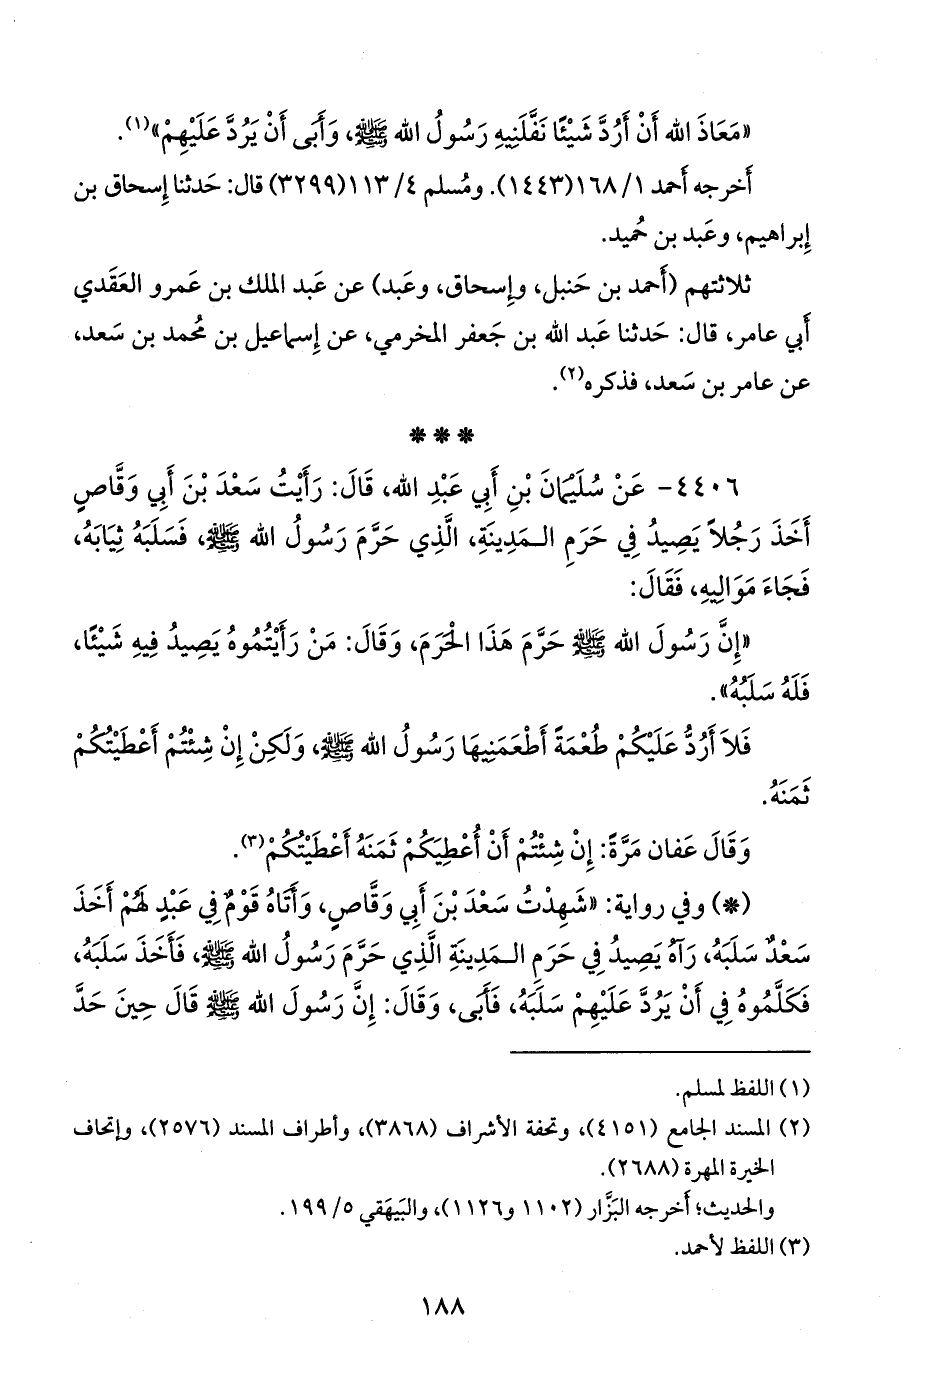 «مَعَاذَ الله أَنْ أَرُدَّ شَيْئًا نَفَّلَنِيهِ رَسُولُ الله ﷺ، وَأَبَى أَنْ يَرُدَّ عَلَيْهِمْ»(١).
أَخرجه أَحمد ١/ ١٦٨(١٤٤٣). ومُسلم ٤/ ١١٣(٣٢٩٩) قال: حَدثنا إِسحاق بن
إِبراهيم، وعَبد بن حُميد.
ثلاثتهم (أَحمد بن حَنبل، وإِسحاق، وعَبد) عن عَبد الملك بن عَمرو العَقَدي
أَبي عامر، قال: حَدثنا عَبد الله بن جَعفر المخرمي، عن إِسماعيل بن مُحمد بن سَعد،
عن عامر بن سَعد، فذكره(٢).
* * *
٤٤٠٦- عَنْ سُلَيْمَانَ بْنِ أَبِي عَبْدِ الله، قَالَ: رَأَيْتُ سَعْدَ بْنَ أَبِي وَقَّاصٍ
أَخَذَ رَجُلاً يَصِيدُ فِي حَرَمِ الـمَدِينَةِ، الَّذِي حَرَّمَ رَسُولُ الله ﷺ، فَسَلَبَهُ ثِيَابَهُ،
فَجَاءَ مَوَالِيهِ، فَقَالَ:
«إِنَّ رَسُولَ الله ﷺ حَرَّمَ هَذَا الْحَرَمَ، وَقَالَ: مَنْ رَأَيْتُمُوهُ يَصِيدُ فِيهِ شَيْئًا،
فَلَهُ سَلَبُهُ».
فَلاَ أَرُدُّ عَلَيْكُمْ طُعْمَةً أَطْعَمَنِيهَا رَسُولُ الله ﷺ، وَلَكِنْ إِنْ شِئْتُمْ أَعْطَيْتُكُمْ
ثَمَنَهُ.
وَقَالَ عَفان مَرَّةً: إِنْ شِئْتُمْ أَنْ أُعْطِيَكُمْ ثَمَنَهُ أَعْطَيْتُكُمْ(٣).
(*) وفي رواية: «شَهِدْتُ سَعْدَ بْنَ أَبِي وَقَّاصٍ، وَأَتَاهُ قَوْمٌ فِي عَبْدٍ لَهُمْ أَخَذَ
سَعْدٌ سَلَبَهُ، رَآهُ يَصِيدُ فِي حَرَمِ الـمَدِينَةِ الَّذِي حَرَّمَ رَسُولُ الله ﷺ، فَأَخَذَ سَلَبَهُ،
فَكَلَّمُوهُ فِي أَنْ يَرُدَّ عَلَيْهِمْ سَلَبَهُ، فَأَبَى، وَقَالَ: إِنَّ رَسُولَ الله ﷺ قَالَ حِينَ حَدَّ
(١) اللفظ لمسلم.
(٢) المسند الجامع (٤١٥١)، وتحفة الأشراف (٣٨٦٨)، وأطراف المسند (٢٥٧٦)، وإتحاف
الخيرة المهرة (٢٦٨٨).
والحديث؛ أَخرجه البَزَّار (١١٠٢ و١١٢٦)، والبَيهَقي ٥/ ١٩٩.
(٣) اللفظ لأحمد.
١٨٨